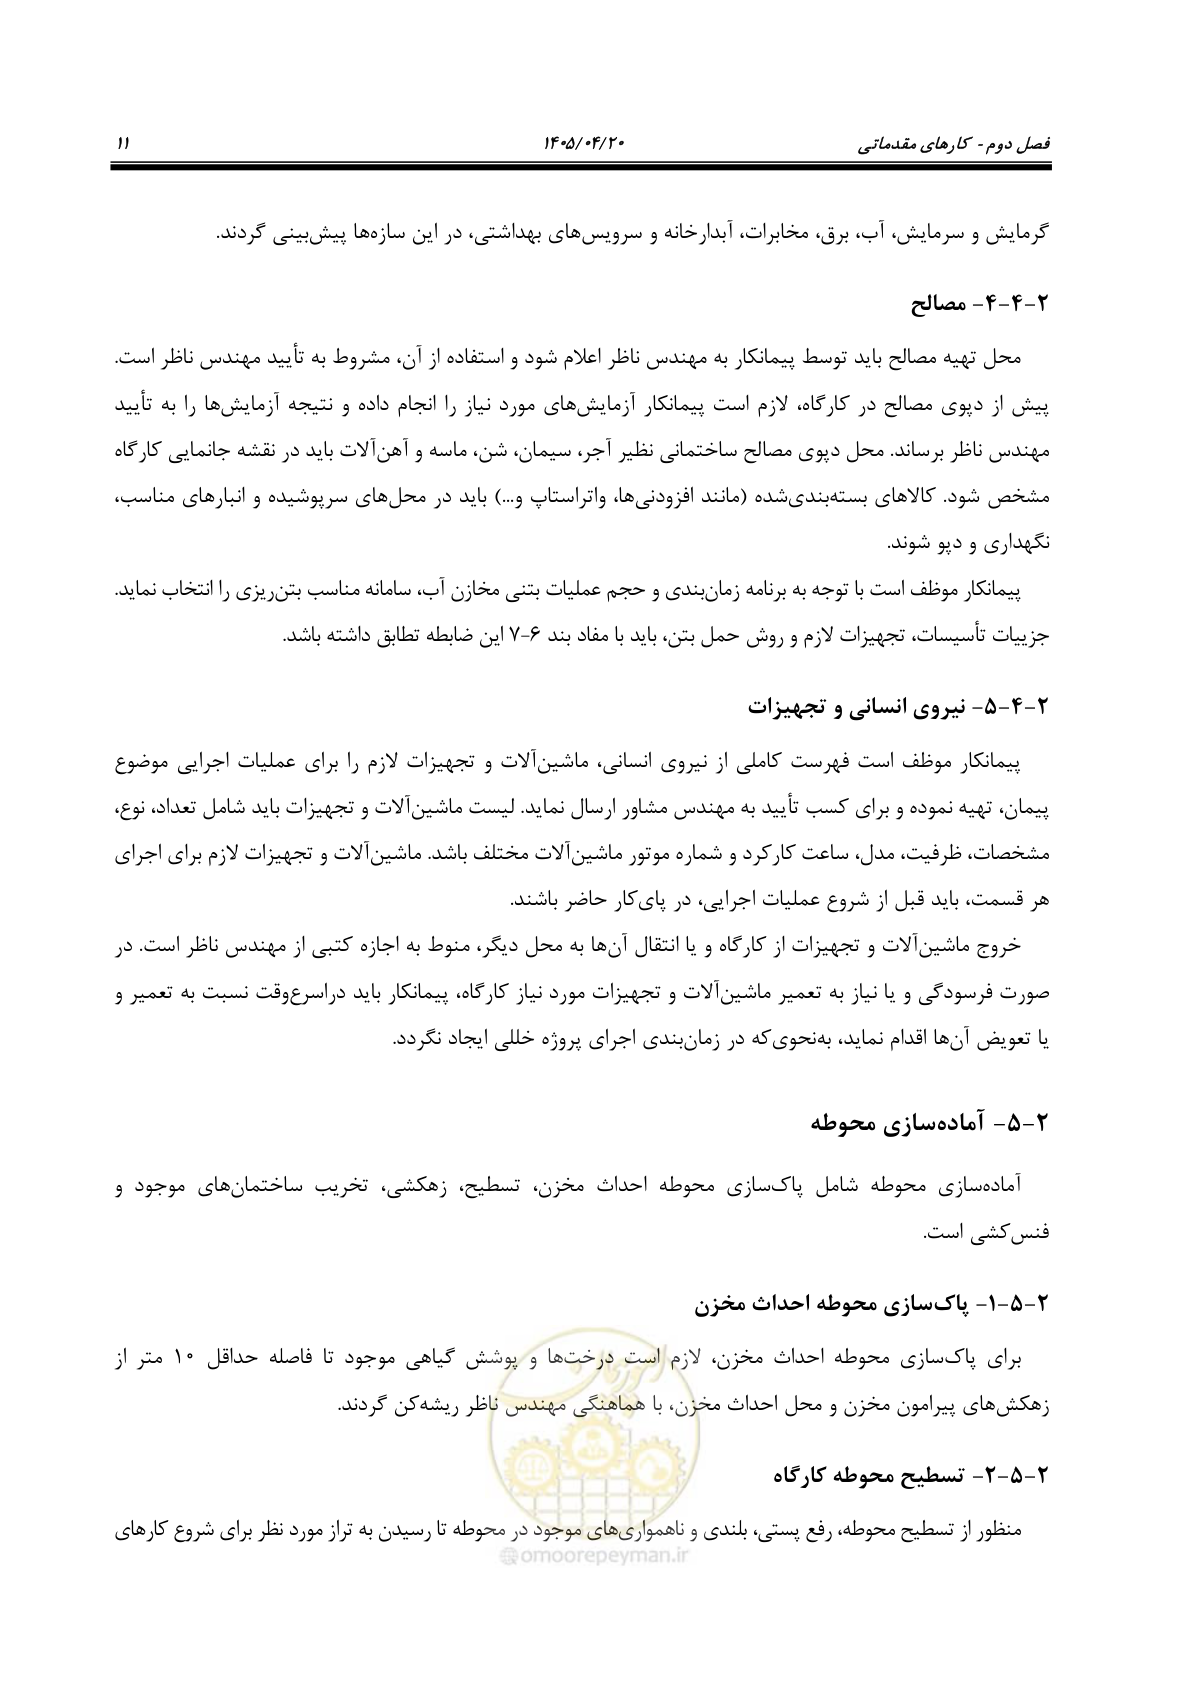 فصل دوم - کارهای مقدماتی ۱۴۰۵/۰۴/۲۰ ۱۱
گرمایش و سرمایش، آب، برق، مخابرات، آبدارخانه و سرویس‌های بهداشتی، در این سازه‌ها پیش‌بینی گردند.
۲-۴-۴- مصالح
محل تهیه مصالح باید توسط پیمانکار به مهندس ناظر اعلام شود و استفاده از آن، مشروط به تأیید مهندس ناظر است.
پیش از دپوی مصالح در کارگاه، لازم است پیمانکار آزمایش‌های مورد نیاز را انجام داده و نتیجه آزمایش‌ها را به تأیید
مهندس ناظر برساند. محل دپوی مصالح ساختمانی نظیر آجر، سیمان، شن، ماسه و آهن‌آلات باید در نقشه جانمایی کارگاه
مشخص شود. کالاهای بسته‌بندی‌شده (مانند افزودنی‌ها، واتراستاپ و...) باید در محل‌های سرپوشیده و انبارهای مناسب،
نگهداری و دپو شوند.
پیمانکار موظف است با توجه به برنامه زمان‌بندی و حجم عملیات بتنی مخازن آب، سامانه مناسب بتن‌ریزی را انتخاب نماید.
جزییات تأسیسات، تجهیزات لازم و روش حمل بتن، باید با مفاد بند ۶-۷ این ضابطه تطابق داشته باشد.
۲-۴-۵- نیروی انسانی و تجهیزات
پیمانکار موظف است فهرست کاملی از نیروی انسانی، ماشین‌آلات و تجهیزات لازم را برای عملیات اجرایی موضوع
پیمان، تهیه نموده و برای کسب تأیید به مهندس مشاور ارسال نماید. لیست ماشین‌آلات و تجهیزات باید شامل تعداد، نوع،
مشخصات، ظرفیت، مدل، ساعت کارکرد و شماره موتور ماشین‌آلات مختلف باشد. ماشین‌آلات و تجهیزات لازم برای اجرای
هر قسمت، باید قبل از شروع عملیات اجرایی، در پای‌کار حاضر باشند.
خروج ماشین‌آلات و تجهیزات از کارگاه و یا انتقال آن‌ها به محل دیگر، منوط به اجازه کتبی از مهندس ناظر است. در
صورت فرسودگی و یا نیاز به تعمیر ماشین‌آلات و تجهیزات مورد نیاز کارگاه، پیمانکار باید دراسرع‌وقت نسبت به تعمیر و
یا تعویض آن‌ها اقدام نماید، به‌نحوی‌که در زمان‌بندی اجرای پروژه خللی ایجاد نگردد.
۲-۵- آماده‌سازی محوطه
آماده‌سازی محوطه شامل پاک‌سازی محوطه احداث مخزن، تسطیح، زهکشی، تخریب ساختمان‌های موجود و
فنس‌کشی است.
۲-۵-۱- پاک‌سازی محوطه احداث مخزن
برای پاک‌سازی محوطه احداث مخزن، لازم است درخت‌ها و پوشش گیاهی موجود تا فاصله حداقل ۱۰ متر از
زهکش‌های پیرامون مخزن و محل احداث مخزن، با هماهنگی مهندس ناظر ریشه‌کن گردند.
۲-۵-۲- تسطیح محوطه کارگاه
منظور از تسطیح محوطه، رفع پستی، بلندی و ناهمواری‌های موجود در محوطه تا رسیدن به تراز مورد نظر برای شروع کارهای
امور پیمان
@omoorepeyman.ir